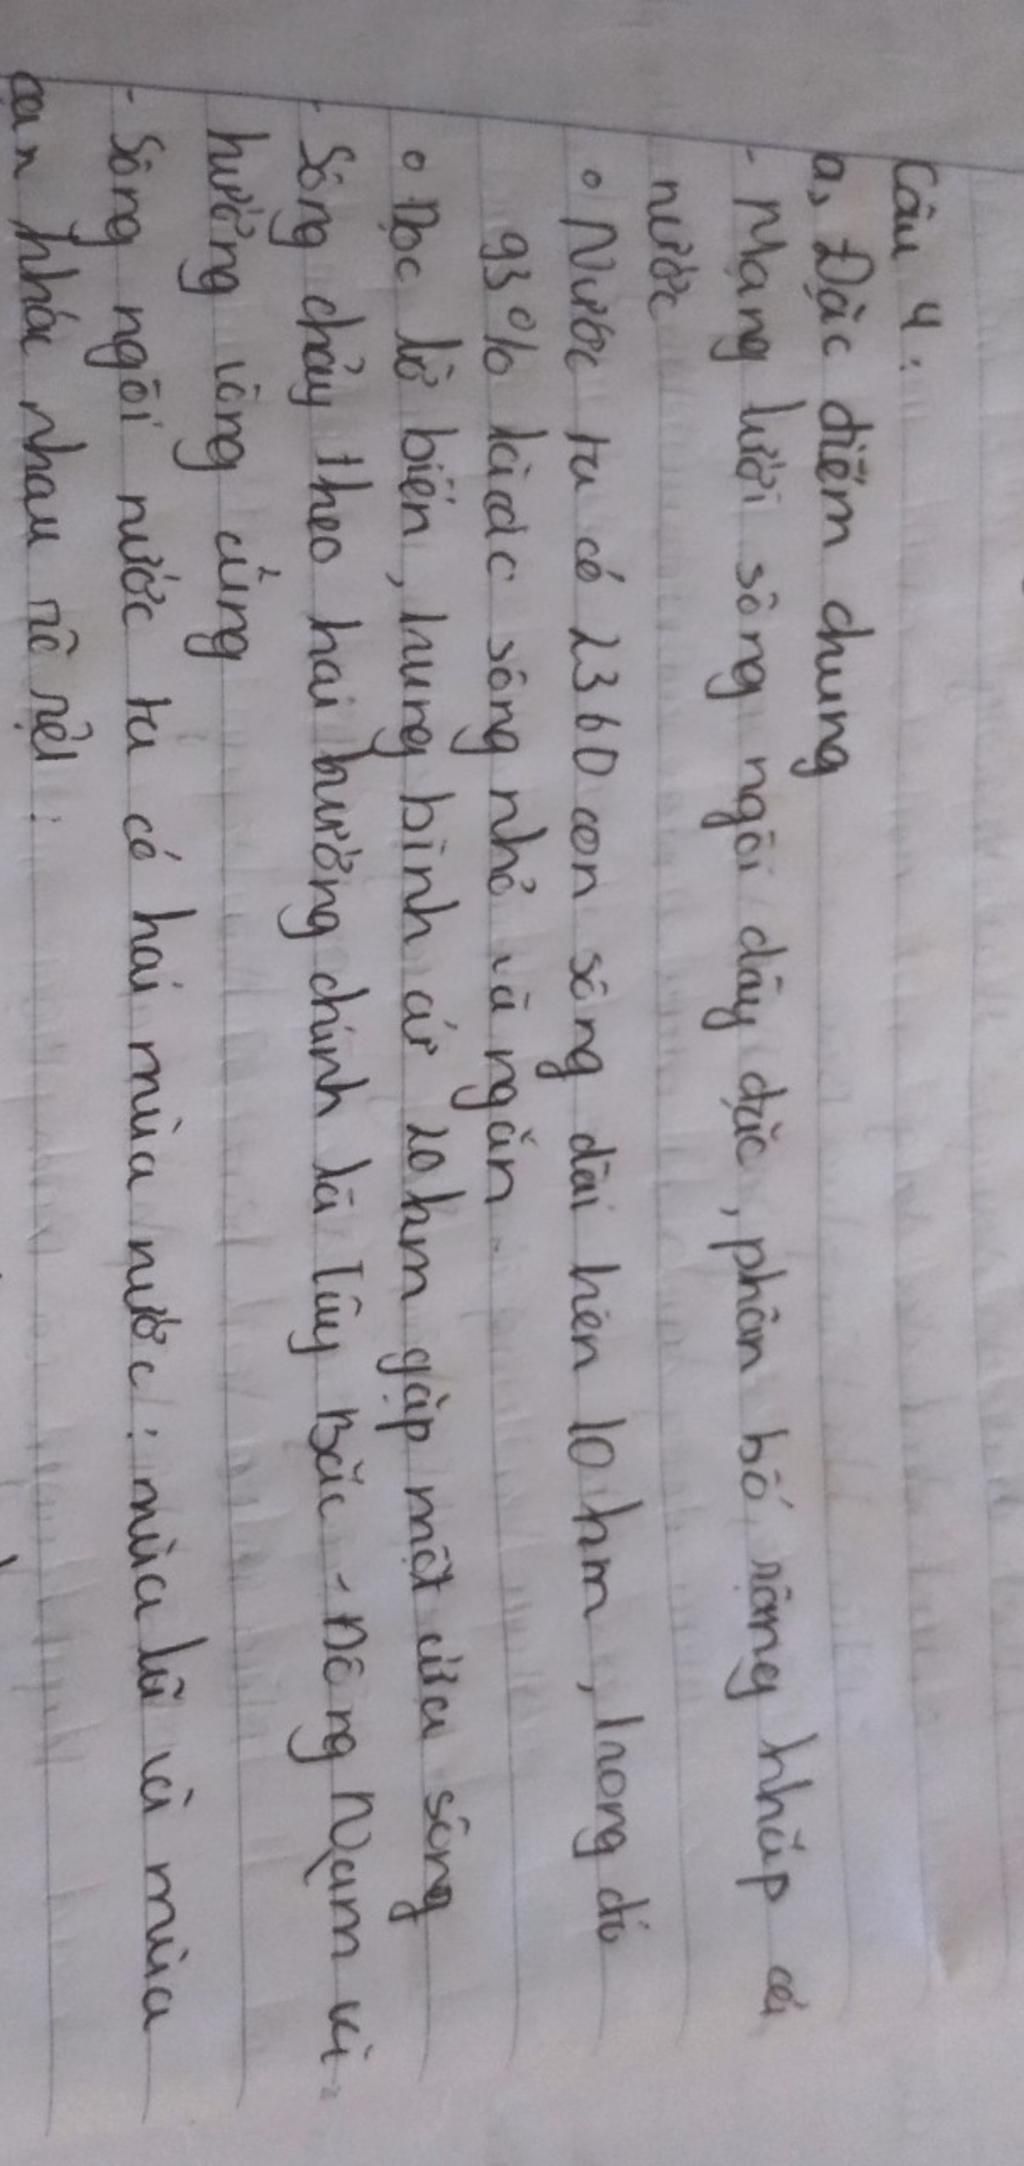 Câu 4:
a, Đặc điểm chung
- Mạng lưới sông ngòi dày đặc, phân bố rộng khắp cả
nước
o Nước ta có 2360 con sông dài hơn 10 km, trong đó
93% là các sông nhỏ và ngắn.
o Dọc bờ biển, trung bình cứ 20km gặp một cửa sông
- Sông chảy theo hai hướng chính là Tây Bắc - Đông Nam và
hướng vòng cung
- Sông ngòi nước ta có hai mùa nước: mùa lũ và mùa
cạn khác nhau rõ rệt: